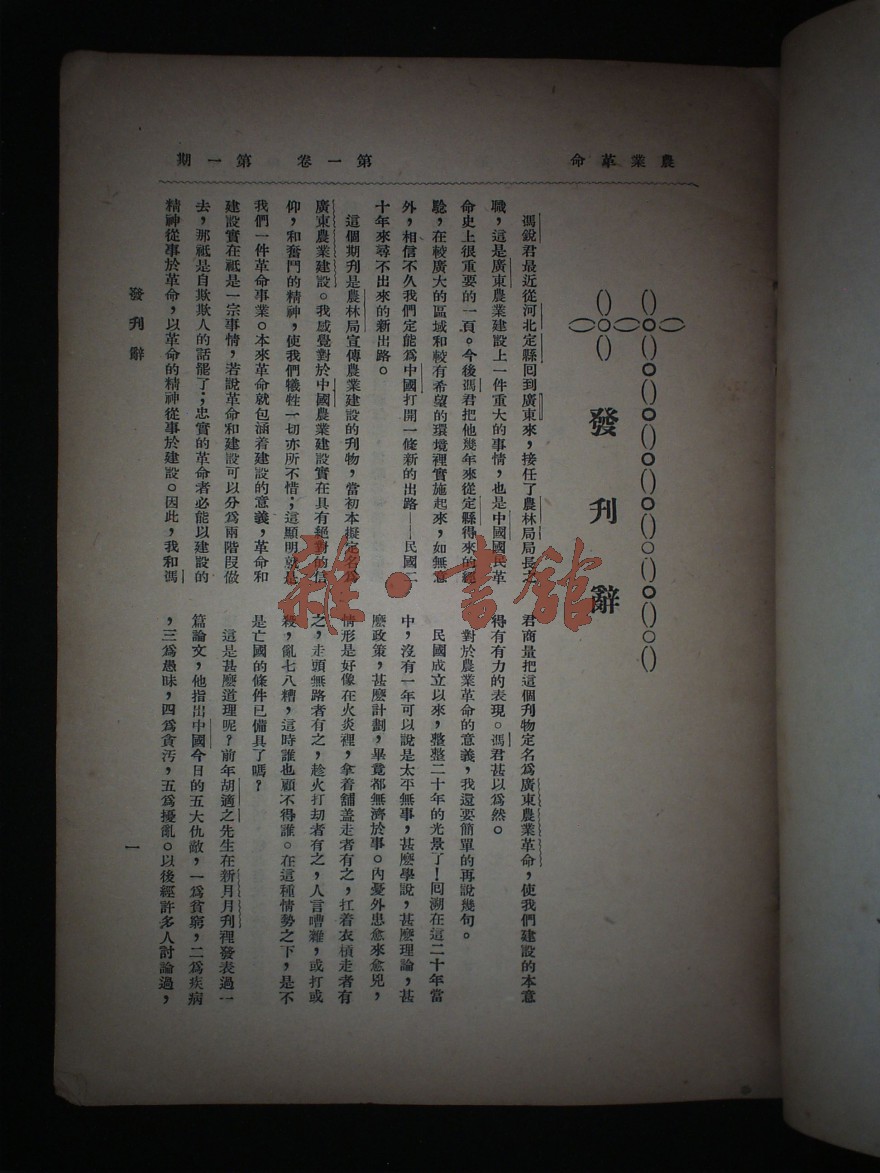 農業革命　第一卷　第一期
發刊辭
馮銳君最近從河北定縣囘到廣東來，接任了農林局局長之
職，這是廣東農業建設上一件重大的事情，也是中國國民革
命史上很重要的一頁。今後馮君把他幾年來從定縣得來的經
驗，在較廣大的區域和較有希望的環境裡實施起來，如無意
外，相信不久我們定能爲中國打開一條新的出路——民國二
十年來尋不出來的新出路。
這個期刊是農林局宣傳農業建設的刊物，當初本擬定名爲
廣東農業建設。我感覺對於中國農業建設實在具有絕對的信
仰，和奮鬥的精神，使我們犧牲一切亦所不惜；這顯明就是
我們一件革命事業。本來革命就包涵着建設的意義，革命和
建設實在祗是一宗事情，若說革命和建設可以分爲兩階段做
去，那祗是自欺欺人的話罷了；忠實的革命者必能以建設的
精神從事於革命，以革命的精神從事於建設。因此，我和馮
君商量把這個刊物定名爲廣東農業革命，使我們建設的本意
得有有力的表現。馮君甚以爲然。
對於農業革命的意義，我還要簡單的再說幾句。
民國成立以來，整整二十年的光景了！囘溯在這二十年當
中，沒有一年可以說是太平無事，甚麽學說，甚麽理論，甚
麽政策，甚麽計劃，畢竟都無濟於事。內憂外患愈來愈兇，
情形是好像在火炎裡，拿着舖蓋走者有之，扛着衣槓走者有
之，走頭無路者有之，趁火打刧者有之，人言嘈雜，或打或
殺，亂七八糟，這時誰也顧不得誰。在這種情勢之下，是不
是亡國的條件已備具了嗎？
這是甚麽道理呢？前年胡適之先生在新月月刋裡發表過一
篇論文，他指出中國今日的五大仇敵，一爲貧窮，二爲疾病
，三爲愚昧，四爲貪汚，五爲擾亂。以後經許多人討論過，
發刋辭
一
雜·書館